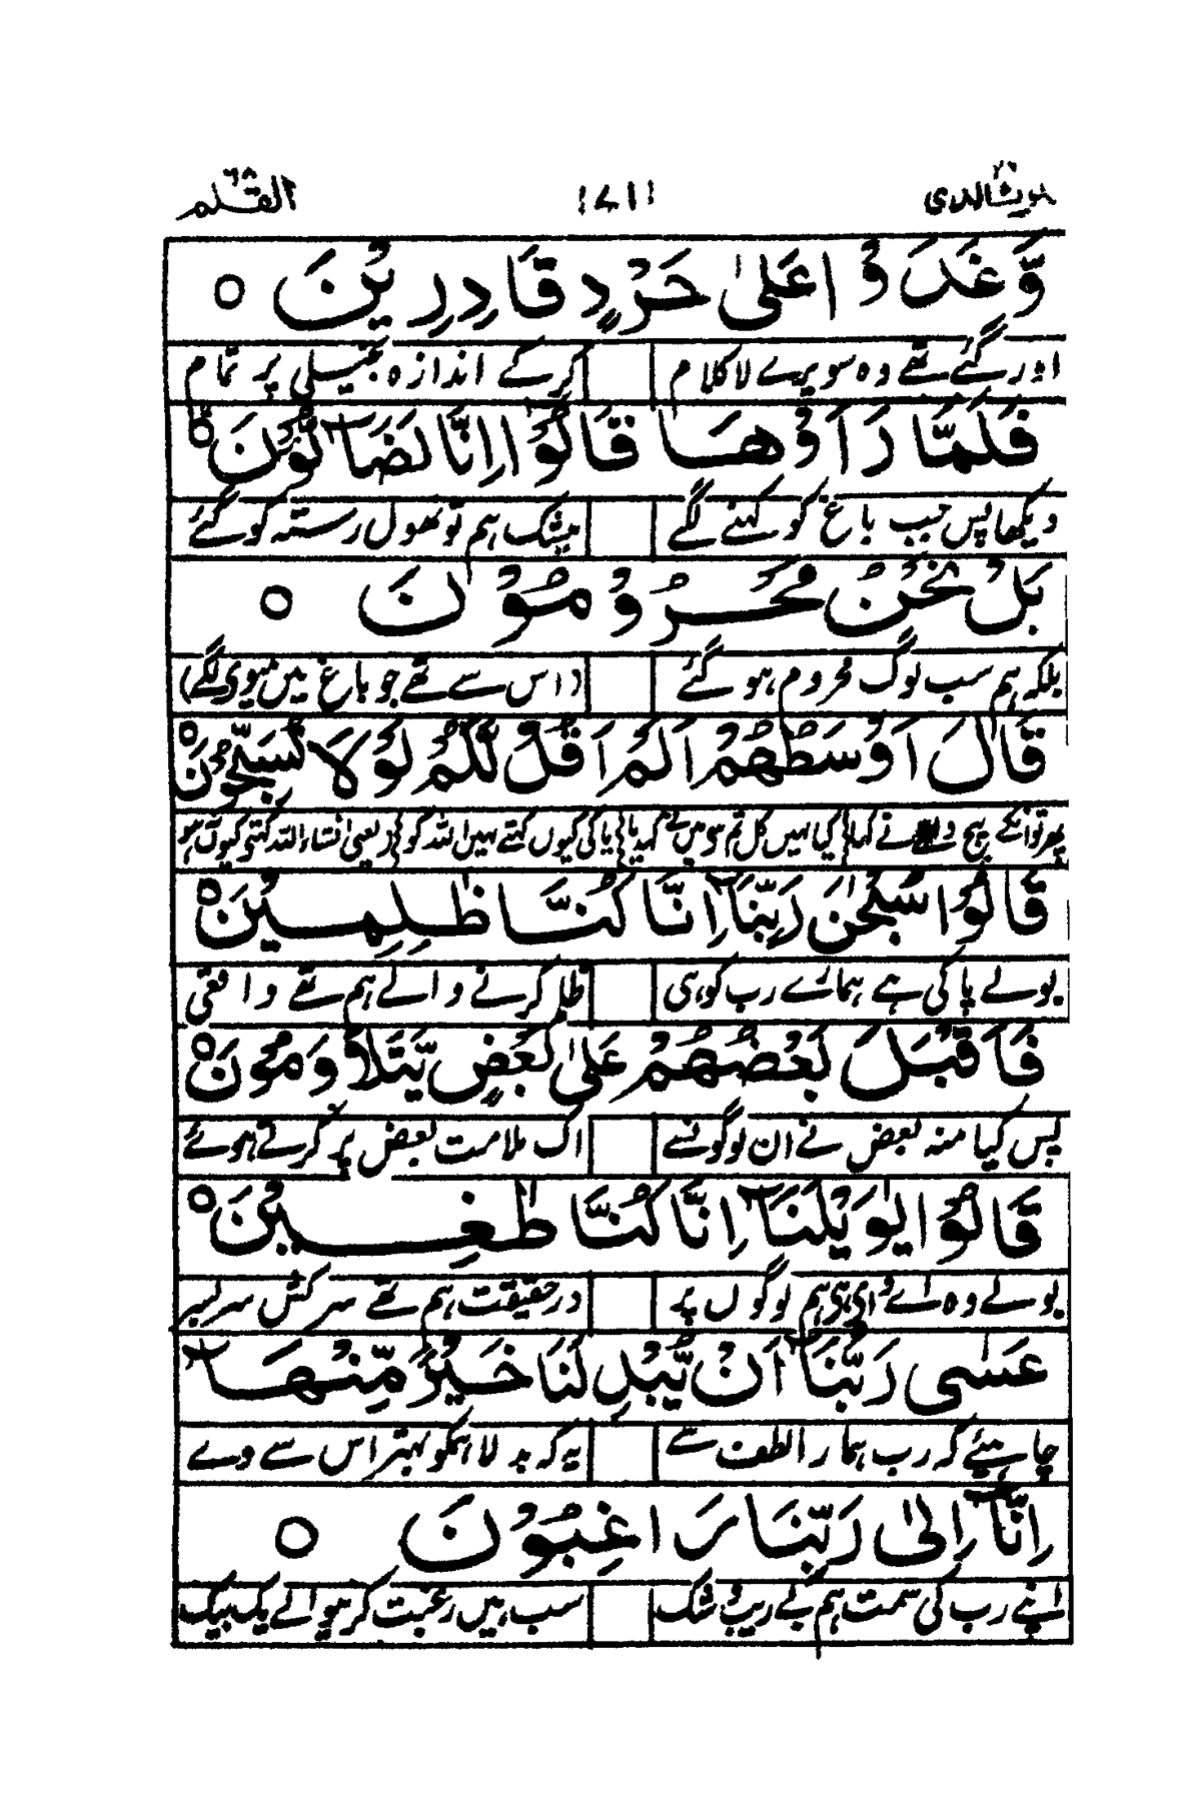 القلم ۶۸
وَّغَدَوْا عَلٰى حَرْدٍ قَادِرِيْنَ ○
اور گئے تھے وہ سویرے لا کلام کر کے اندازہ بخیلی پر تمام
فَلَمَّا رَاَوْهَا قَالُوْا اِنَّا لَضَآلُّوْنَ ○
دیکھا پس جب باغ کو کہنے لگے بیشک ہم تو بھول رستہ کو گئے
بَلْ نَحْنُ مَحْرُوْمُوْنَ ○
بلکہ ہم سب لوگ محروم ہو گئے (اس سے تھے جو باغ میں میوے لگے)
قَالَ اَوْسَطُهُمْ اَلَمْ اَقُلْ لَّكُمْ لَوْلَا تُسَبِّحُوْنَ ○
پھر تو انکے بیچ نے کہا کیا نہیں کل تم سے میں نے کہدیا پاکی کیوں کہتے نہیں اللہ کو (یعنی انشاء اللہ کہتے کیوں نہ ہو
قَالُوْا سُبْحٰنَ رَبِّنَآ اِنَّا كُنَّا ظٰلِمِيْنَ ○
بولے پاکی ہے ہمارے رب کو ہی ظلم کرنے والے ہم تھے واقعی
فَاَقْبَلَ بَعْضُهُمْ عَلٰى بَعْضٍ يَّتَلَاوَمُوْنَ ○
پس کیا منہ بعض نے ان لوگوں سے اک ملامت بعض پر کرتے ہوئے
قَالُوْا يٰوَيْلَنَآ اِنَّا كُنَّا طٰغِيْنَ ○
بولے وہ اے وائی ہم لوگوں پر در حقیقت ہم تھے سرکش سر بسر
عَسٰى رَبُّنَآ اَنْ يُّبْدِلَنَا خَيْرًا مِّنْهَآ
چاہیئے کہ رب ہمارا لطف سے یہ کہ بدلا ہمکو بہتر اس سے دے
اِنَّآ اِلٰى رَبِّنَا رَاغِبُوْنَ ○
اپنے رب کی سمت ہم بے ریب و شک سب ہیں رغبت کرنیوالے یک بیک